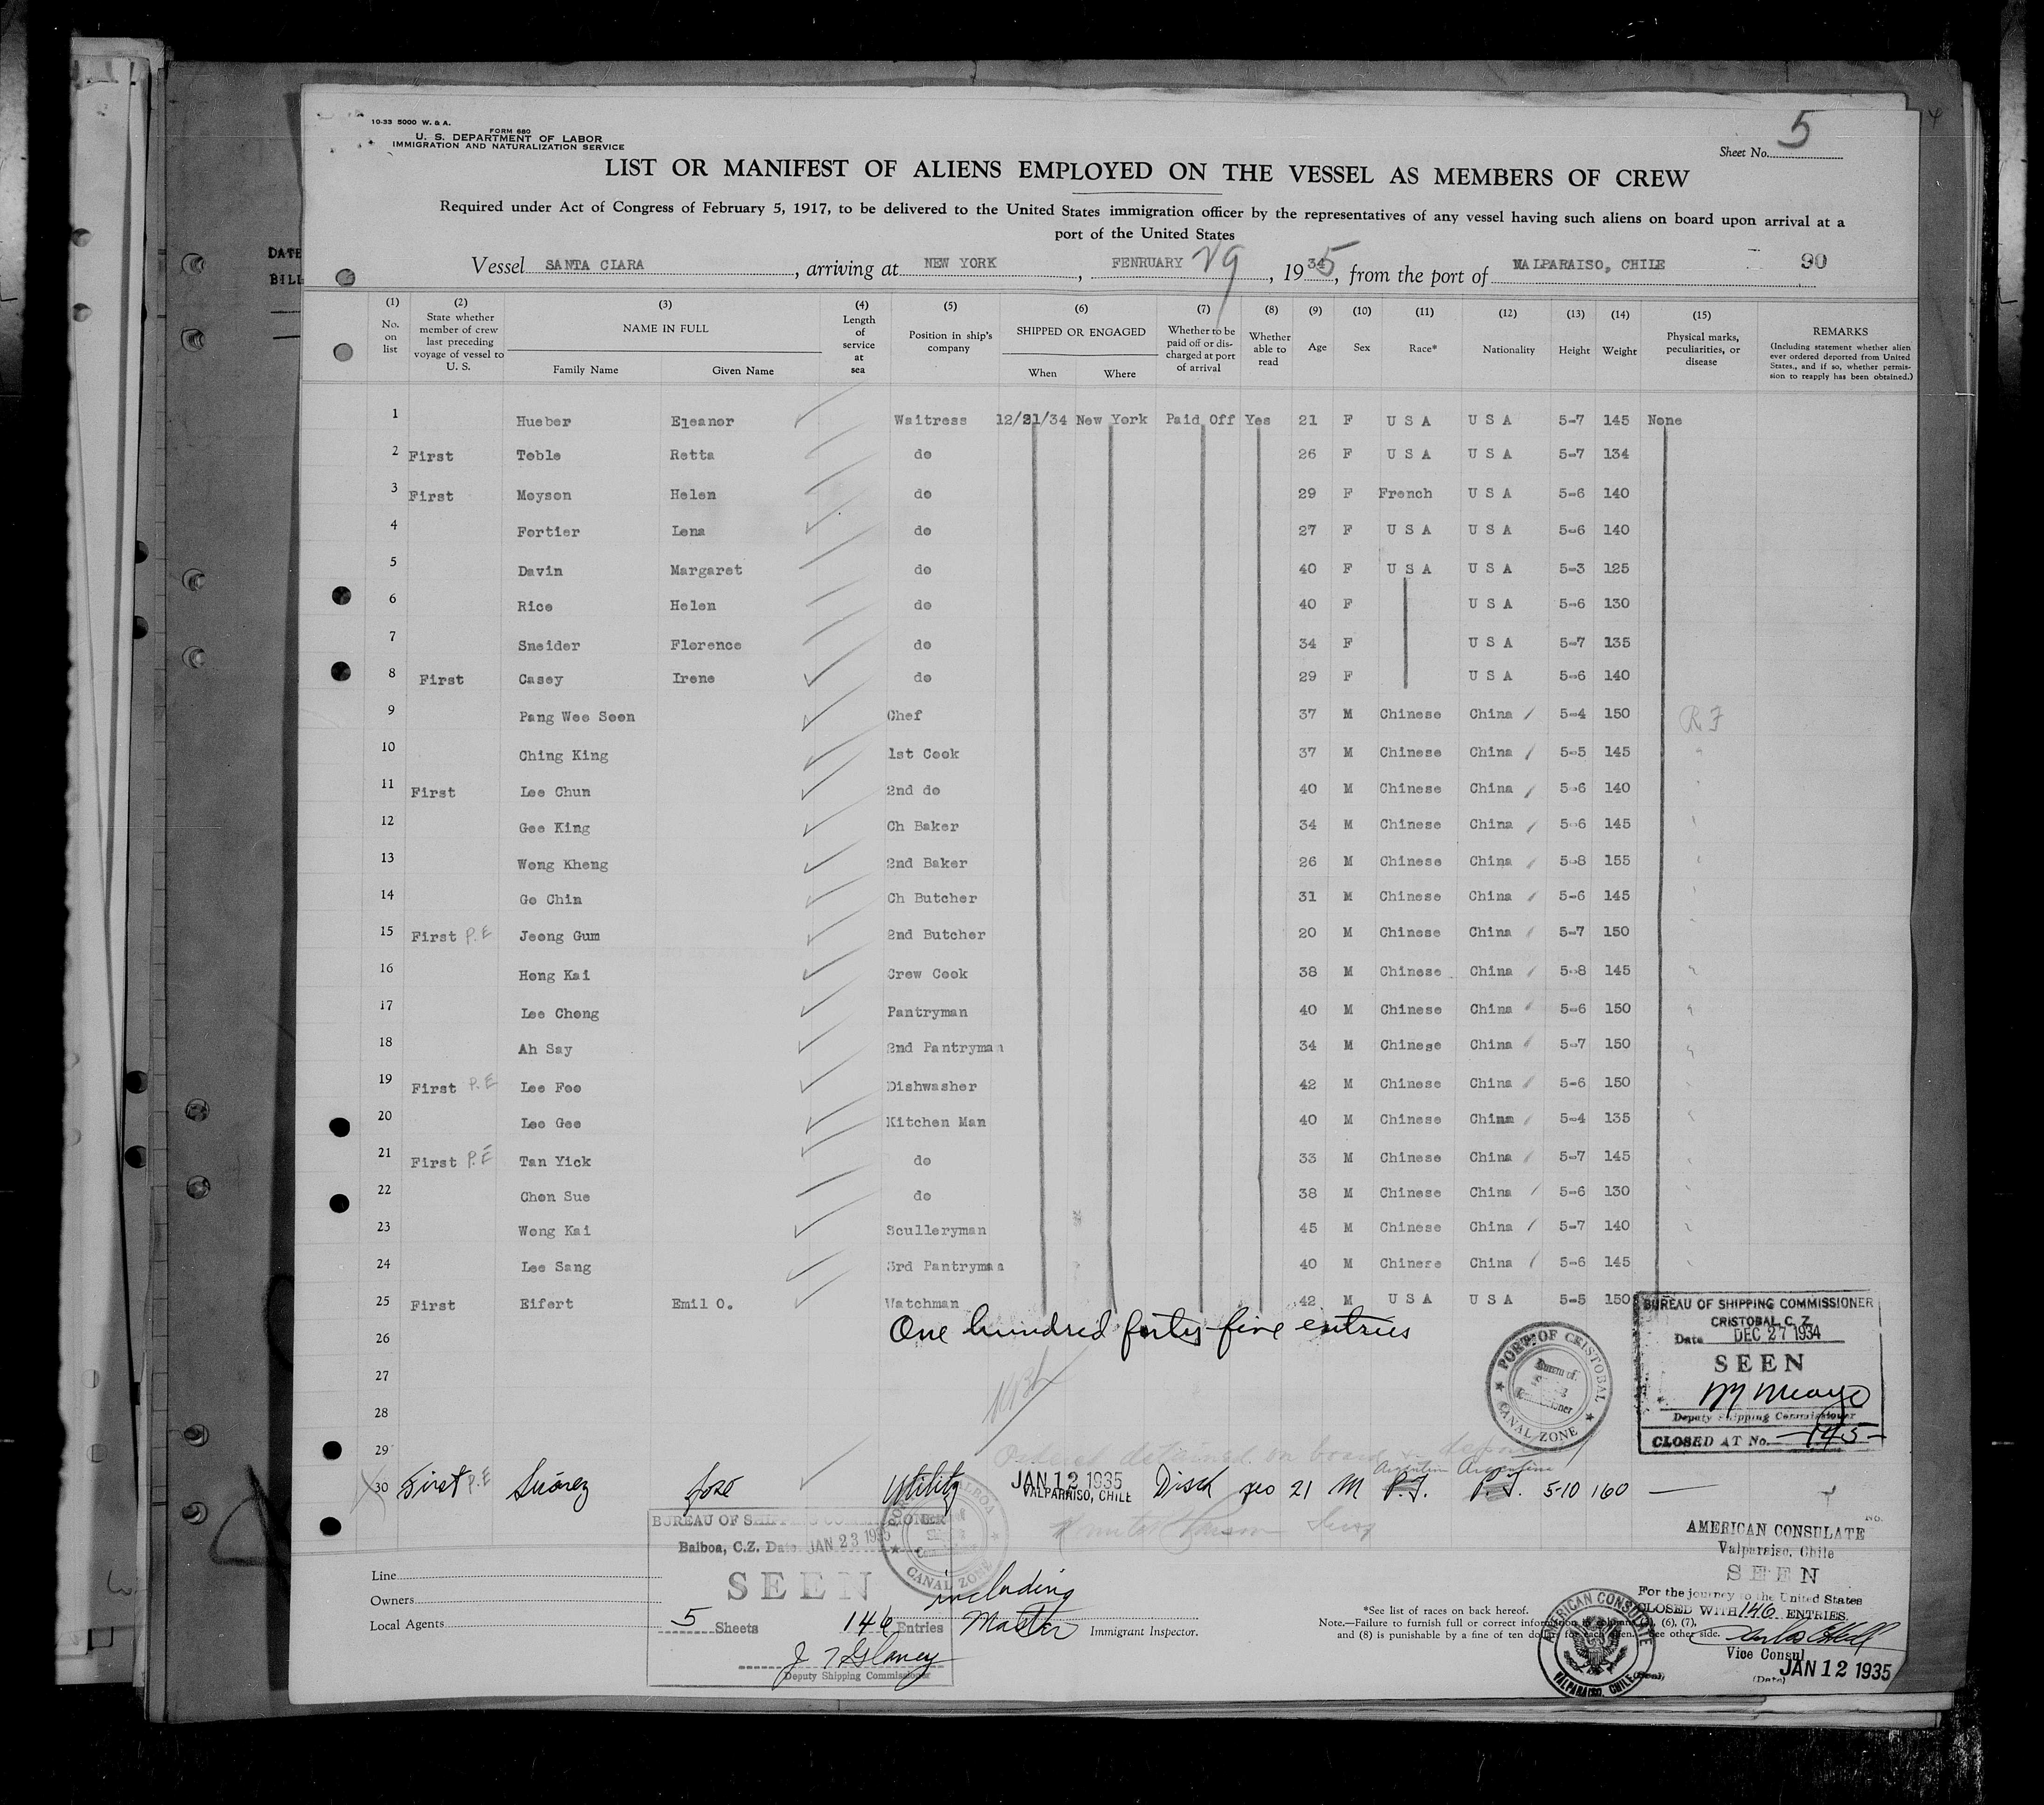 10-33 5000 W. & A.
FORM 680
U. S. DEPARTMENT OF LABOR
IMMIGRATION AND NATURALIZATION SERVICE
Sheet No. 5
LIST OR MANIFEST OF ALIENS EMPLOYED ON THE VESSEL AS MEMBERS OF CREW
Required under Act of Congress of February 5, 1917, to be delivered to the United States immigration officer by the representatives of any vessel having such aliens on board upon arrival at a
port of the United States
DATE
BILL
Vessel SANTA CLARA, arriving at NEW YORK, FENRUARY 29, 1935, from the port of VALPARAISO, CHILE 90
(1) No. on list
(2) State whether member of crew last preceding voyage of vessel to U. S.
(3) NAME IN FULL Family Name Given Name
(4) Length of service at sea
(5) Position in ship's company
(6) SHIPPED OR ENGAGED When Where
(7) Whether to be paid off or discharged at port of arrival
(8) Whether able to read
(9) Age
(10) Sex
(11) Race*
(12) Nationality
(13) Height
(14) Weight
(15) Physical marks, peculiarities, or disease
REMARKS
(Including statement whether alien ever ordered deported from United States, and if so, whether permission to reapply has been obtained.)
1 Hueber Eleanor Waitress 12/21/34 New York Paid Off Yes 21 F U S A U S A 5-7 145 None
2 First Toble Retta do 26 F U S A U S A 5-7 134
3 First Moyson Helen do 29 F French U S A 5-6 140
4 Fortier Lena do 27 F U S A U S A 5-6 140
5 Davin Margaret do 40 F U S A U S A 5-3 125
6 Rice Helen do 40 F U S A 5-6 130
7 Sneider Florence do 34 F U S A 5-7 135
8 First Casey Irene do 29 F U S A 5-6 140
9 Pang Wee Soon Chef 37 M Chinese China 5-4 150 R F
10 Ching King 1st Cook 37 M Chinese China 5-5 145
11 First Lee Chun 2nd do 40 M Chinese China 5-6 140
12 Gee King Ch Baker 34 M Chinese China 5-6 145
13 Wong Kheng 2nd Baker 26 M Chinese China 5-8 155
14 Go Chin Ch Butcher 31 M Chinese China 5-6 145
15 First P.E Jeong Gum 2nd Butcher 20 M Chinese China 5-7 150
16 Hong Kai Crew Cook 38 M Chinese China 5-8 145
17 Lee Chong Pantryman 40 M Chinese China 5-6 150
18 Ah Say 2nd Pantryman 34 M Chinese China 5-7 150
19 First P.E Lee Foo Dishwasher 42 M Chinese China 5-6 150
20 Lee Gee Kitchen Man 40 M Chinese China 5-4 135
21 First P.E Tan Yick do 33 M Chinese China 5-7 145
22 Chon Sue do 38 M Chinese China 5-6 130
23 Wong Kai Sculleryman 45 M Chinese China 5-7 140
24 Lee Sang 3rd Pantryman 40 M Chinese China 5-6 145
25 First Eifert Emil O. Watchman 42 M U S A U S A 5-5 150
26 One hundred forty-five entries
27
28
29
Ordered detained on board
30 First P.E Suárez Jose Utility JAN 12 1935 VALPARAISO, CHILE Disch yes 21 M Argentin Argentine 5-10 160
BUREAU OF SHIPPING COMMISSIONER
CRISTOBAL C. Z.
Date DEC 27 1934
SEEN
Deputy Shipping Commissioner
CLOSED AT No. 145
PORT OF CRISTOBAL
CANAL ZONE
BUREAU OF SHIPPING COMMISSIONER
Balboa, C.Z. Date JAN 23 1935
SEEN
5 Sheets 146 Entries including Master
Deputy Shipping Commissioner
CANAL ZONE
Line
Owners
Local Agents
Immigrant Inspector.
*See list of races on back hereof.
Note.—Failure to furnish full or correct information in columns (5), (6), (7),
and (8) is punishable by a fine of ten dollars for each alien. See other side.
No.
AMERICAN CONSULATE
Valparaiso, Chile
SEEN
For the journey to the United States
CLOSED WITH 146 ENTRIES.
Vice Consul
JAN 12 1935
(Date)
(Seal)
AMERICAN CONSULATE
VALPARAISO, CHILE